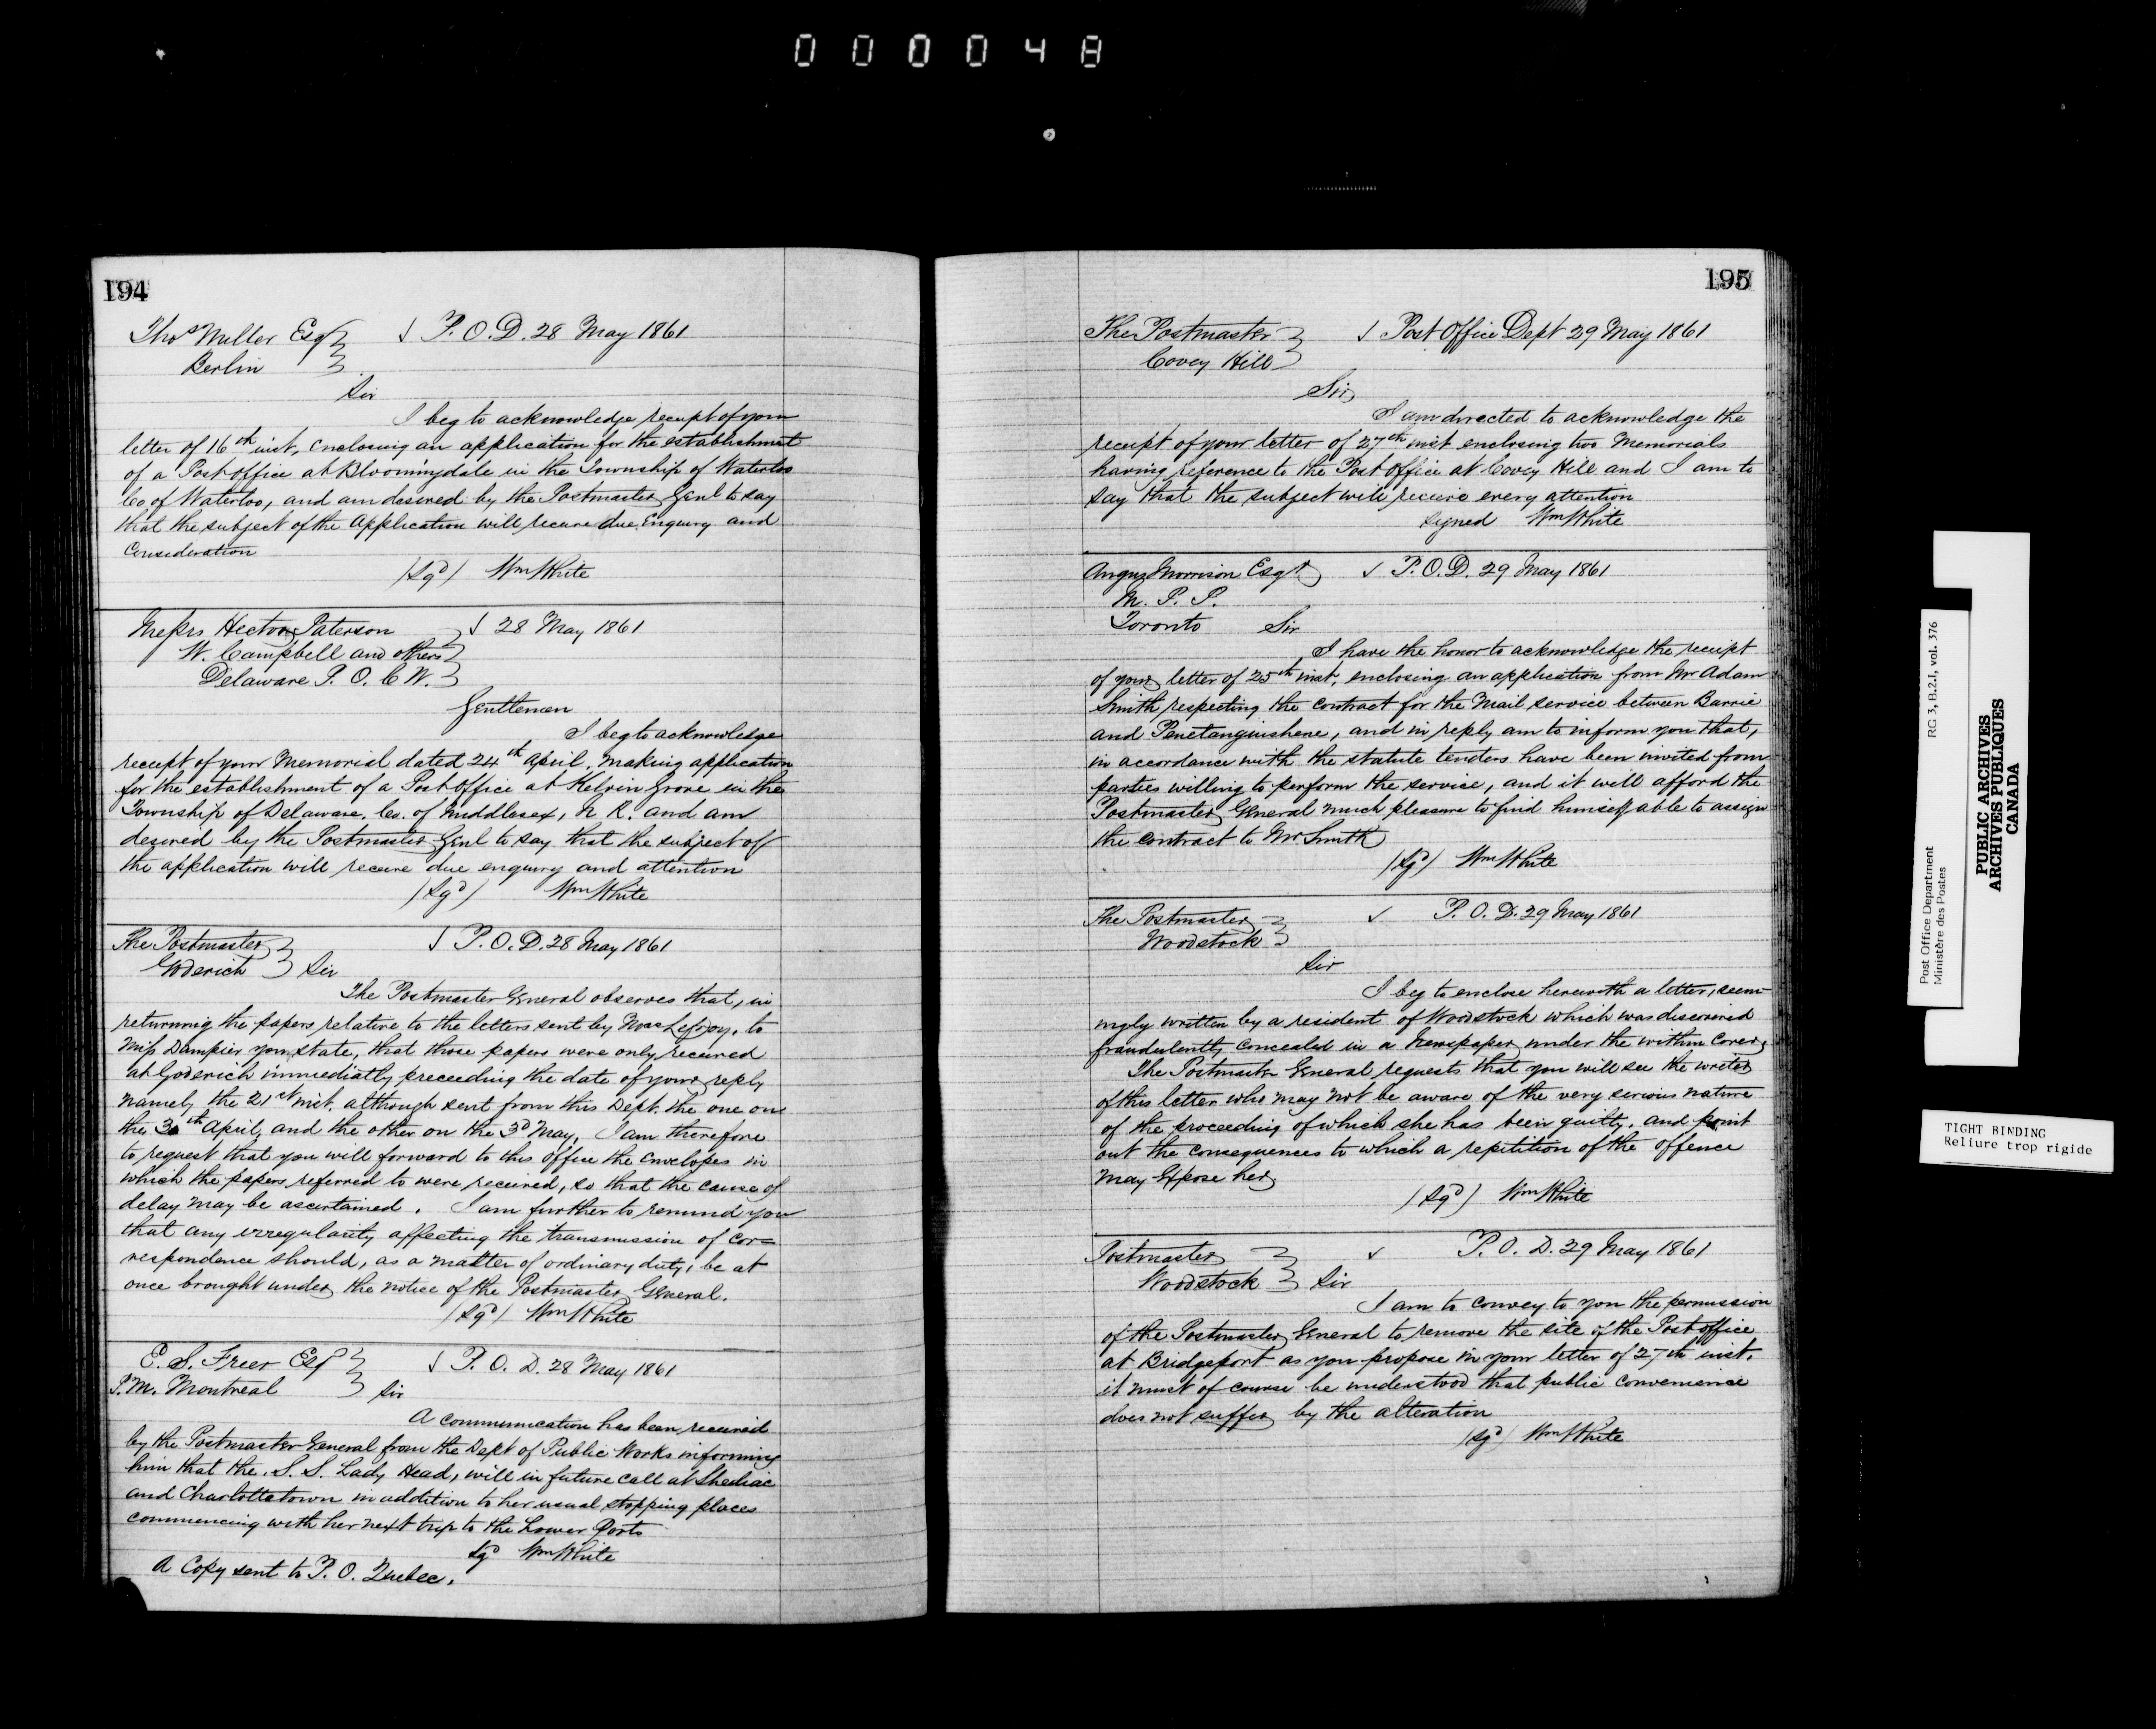 000048
194
Thos Miller Esqr √ P.O.D. 28 May 1861
Berlin
Sir
I beg to acknowledge receipt of your
letter of 16th inst, enclosing an application for the establishment
of a Post office at Bloomingdale in the Township of Waterloo
Co of Waterloo, and am desired by the Postmaster Genl to say
that the subject of the Application will receive due Enquiry and
Consideration
/Sgd/ Wm White
Messrs Hector Paterson √ 28 May 1861
W. Campbell and others
Delaware P.O. C.W.
Gentlemen
I beg to acknowledge
receipt of your Memorial dated 24th April, making application
for the establishment of a Post office at Kelvin Grove in the
Township of Delaware, Co. of Middlesex, N R. and am
desired by the Postmaster Genl to say that the subject of
the application will receive due enquiry and attention
/Sgd/ Wm White
The Postmaster √ P.O.D. 28 May 1861
Goderich Sir
The Postmaster General observes that, in
returning the papers relative to the letters sent by Lefroy, to
Miss Dampier you state, that those papers were only received
at Goderich immediatly preceeding the date of your reply
namely the 21st inst. although sent from this Dept. the one on
the 30th April, and the other on the 3d May, I am therefore
to request that you will forward to this office the Envelopes in
which the papers referred to were received, so that the cause of
delay may be ascertained. I am further to remind you
that any irregularity affecting the transmission of cor=
respondence should, as a matter of ordinary duty, be at
once brought under the notice of the Postmaster General.
/Sgd/ Wm White
E. S. Freer Esqr √ P.O.D. 28 May 1861
P.M. Montreal Sir
A communication has been received
by the Postmaster General from the Dept of Public Works informing
him that the S.S. Lady Head, will in future call at Shediac
and Charlottetown in addition to her usual stopping places
commencing with her next trip to the Lower Ports
Sgd Wm White
A Copy sent to P.O. Quebec.
195
The Postmaster √ Post Office Dept 29 May 1861
Covey Hill
Sir
I am directed to acknowledge the
receipt of your letter of 27th inst enclosing two Memorials
having reference to the Post Office at Covey Hill and I am to
say that the subject will receive every attention
signed Wm White
Angus Morrison Esqr √ P.O.D. 29 May 1861
M.P.P.
Toronto Sir
I have the honor to acknowledge the receipt
of your letter of 25th inst, enclosing an application from Mr Adam
Smith respecting the contract for the Mail service between Barrie
and Penetanguishene, and in reply am to inform you that,
in accordance with the statute tenders have been invited from
parties willing to perform the service, and it will afford the
Postmaster General much pleasure to find himself able to assign
the contract to Mr Smith
/Sgd/ Wm White
The Postmaster √ P.O.D. 29 May 1861
Woodstock
Sir
I beg to enclose herewith a letter, seem-
ingly written by a resident of Woodstock which was discovered
fraudulently concealed in a Newspaper under the within cover,
The Postmaster General requests that you will see the writer
of this letter who may not be aware of the very serious nature
of the proceeding of which she has been guilty, and point
out the consequences to which a repitition of the offence
may Expose her
/Sgd/ Wm White
Postmaster √ P.O.D. 29 May 1861
Woodstock Sir
I am to convey to you the permission
of the Postmaster General to remove the site of the Post office
at Bridgeport as you propose in your letter of 27th inst.
it must of course be understood that public convenience
does not suffer by the alteration
/Sgd/ Wm White
Post Office Department RG 3, B.2.I, vol. 376
Ministère des Postes
PUBLIC ARCHIVES
ARCHIVES PUBLIQUES
CANADA
TIGHT BINDING
Reliure trop rigide